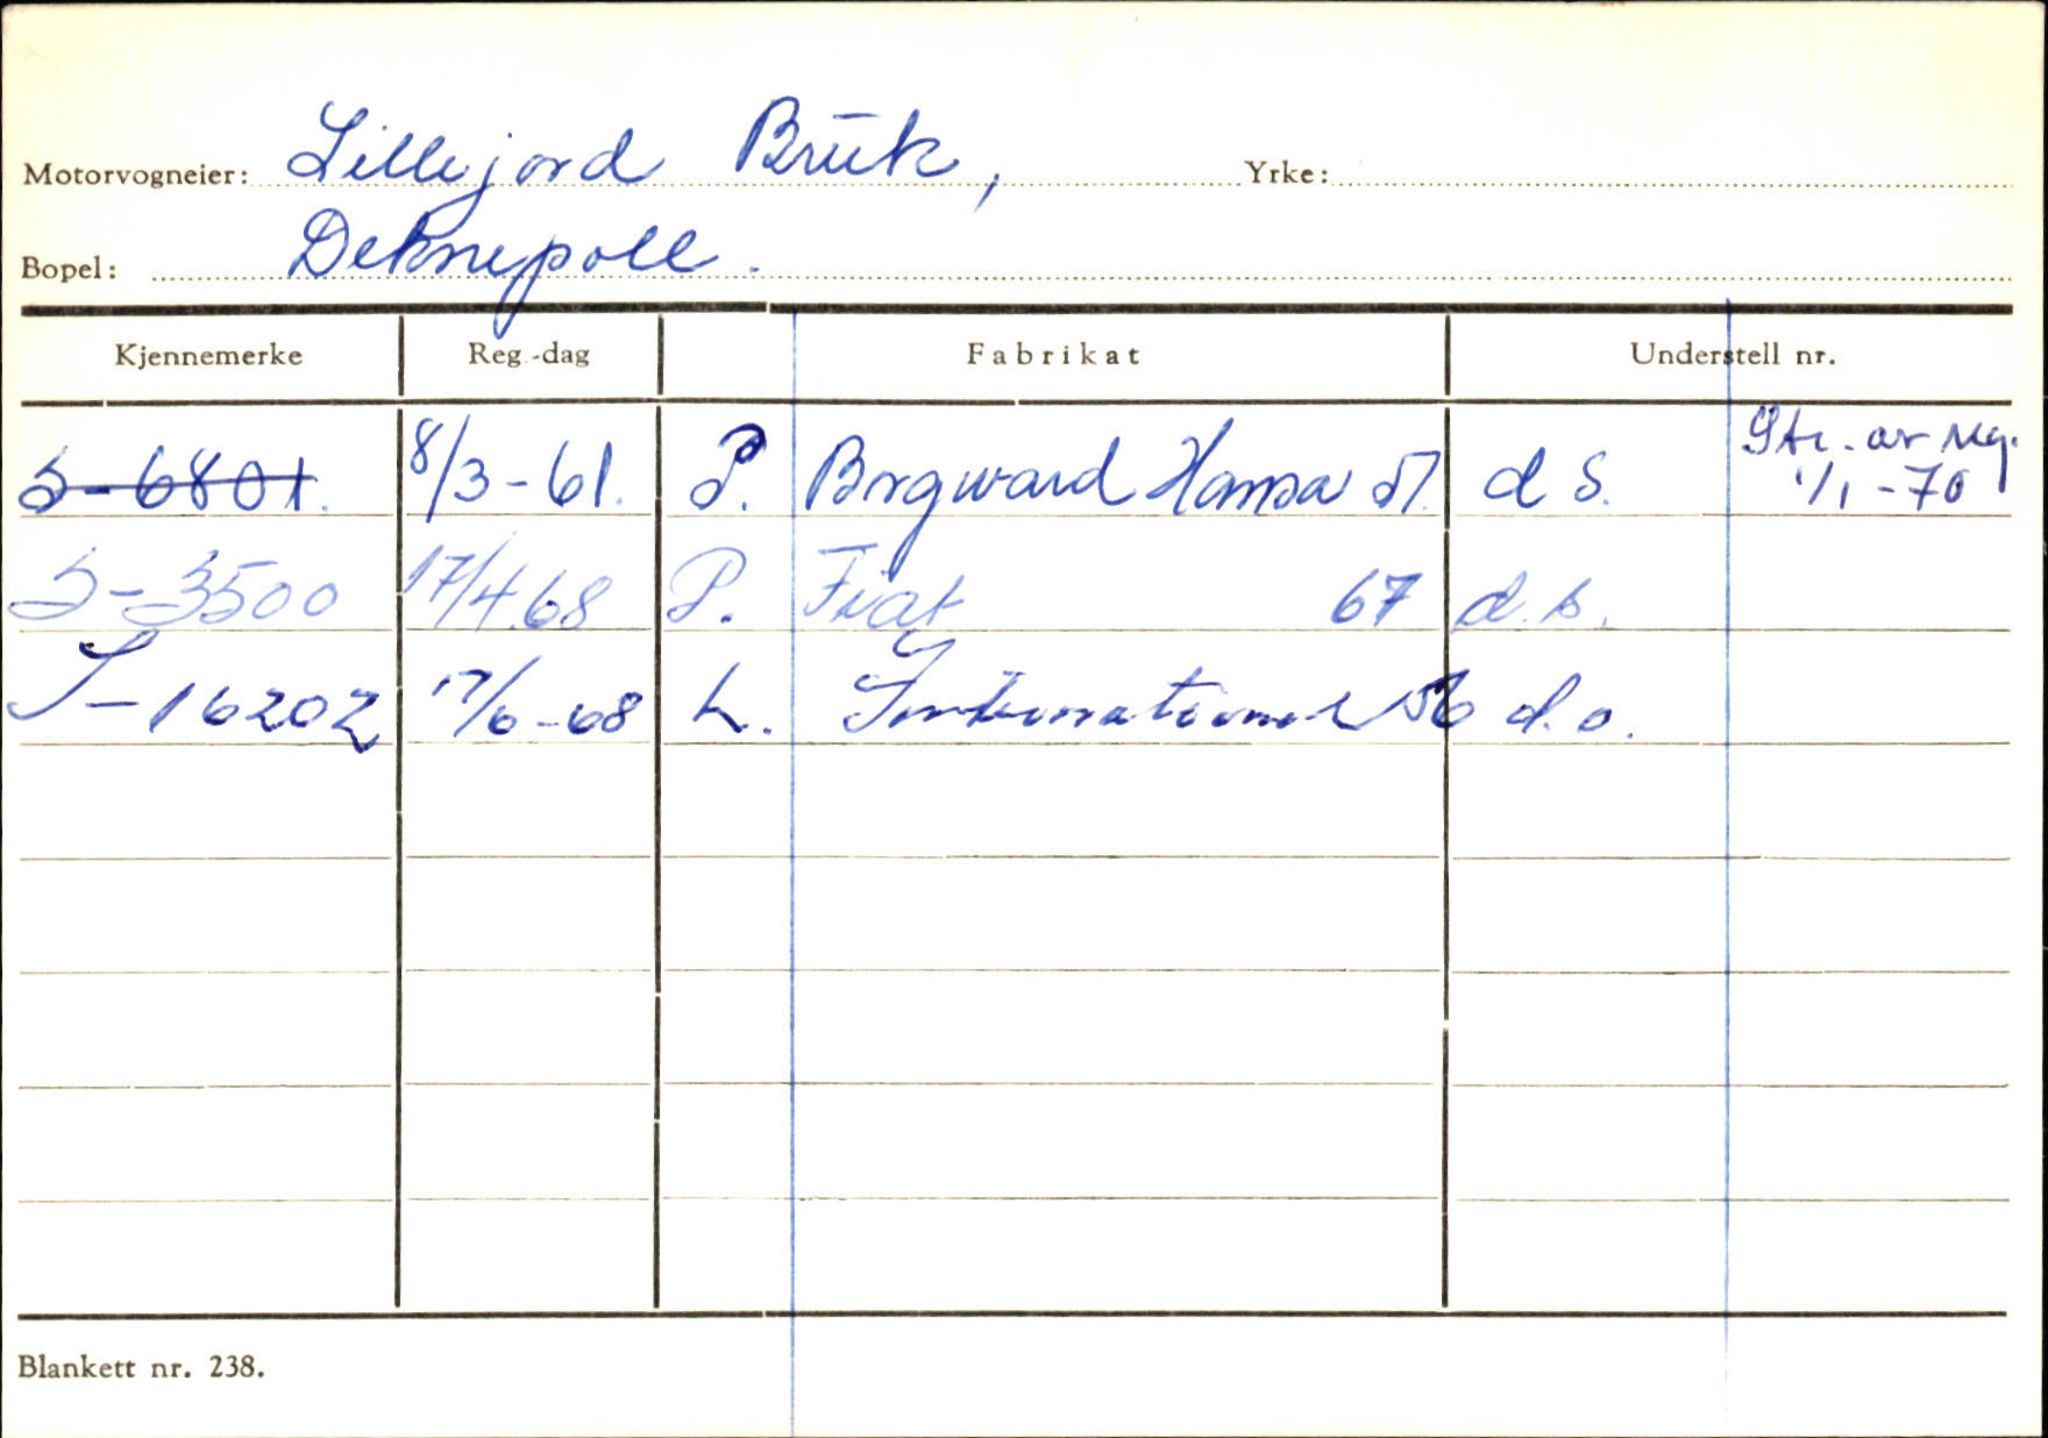 Motorvogneier: Lillejord Bruk, Yrke:
Bopel: Deknepoll.
Kjennemerke Reg.-dag Fabrikat Understell nr.
S-6801. 8/3-61. P. Borgward Hansa 57. d S. Str. av reg. 1/1-70
S-3500 17/4.68 P. Fiat 67 d.s.
S-16202 17/6-68 L. International 56 d.o.
Blankett nr. 238.